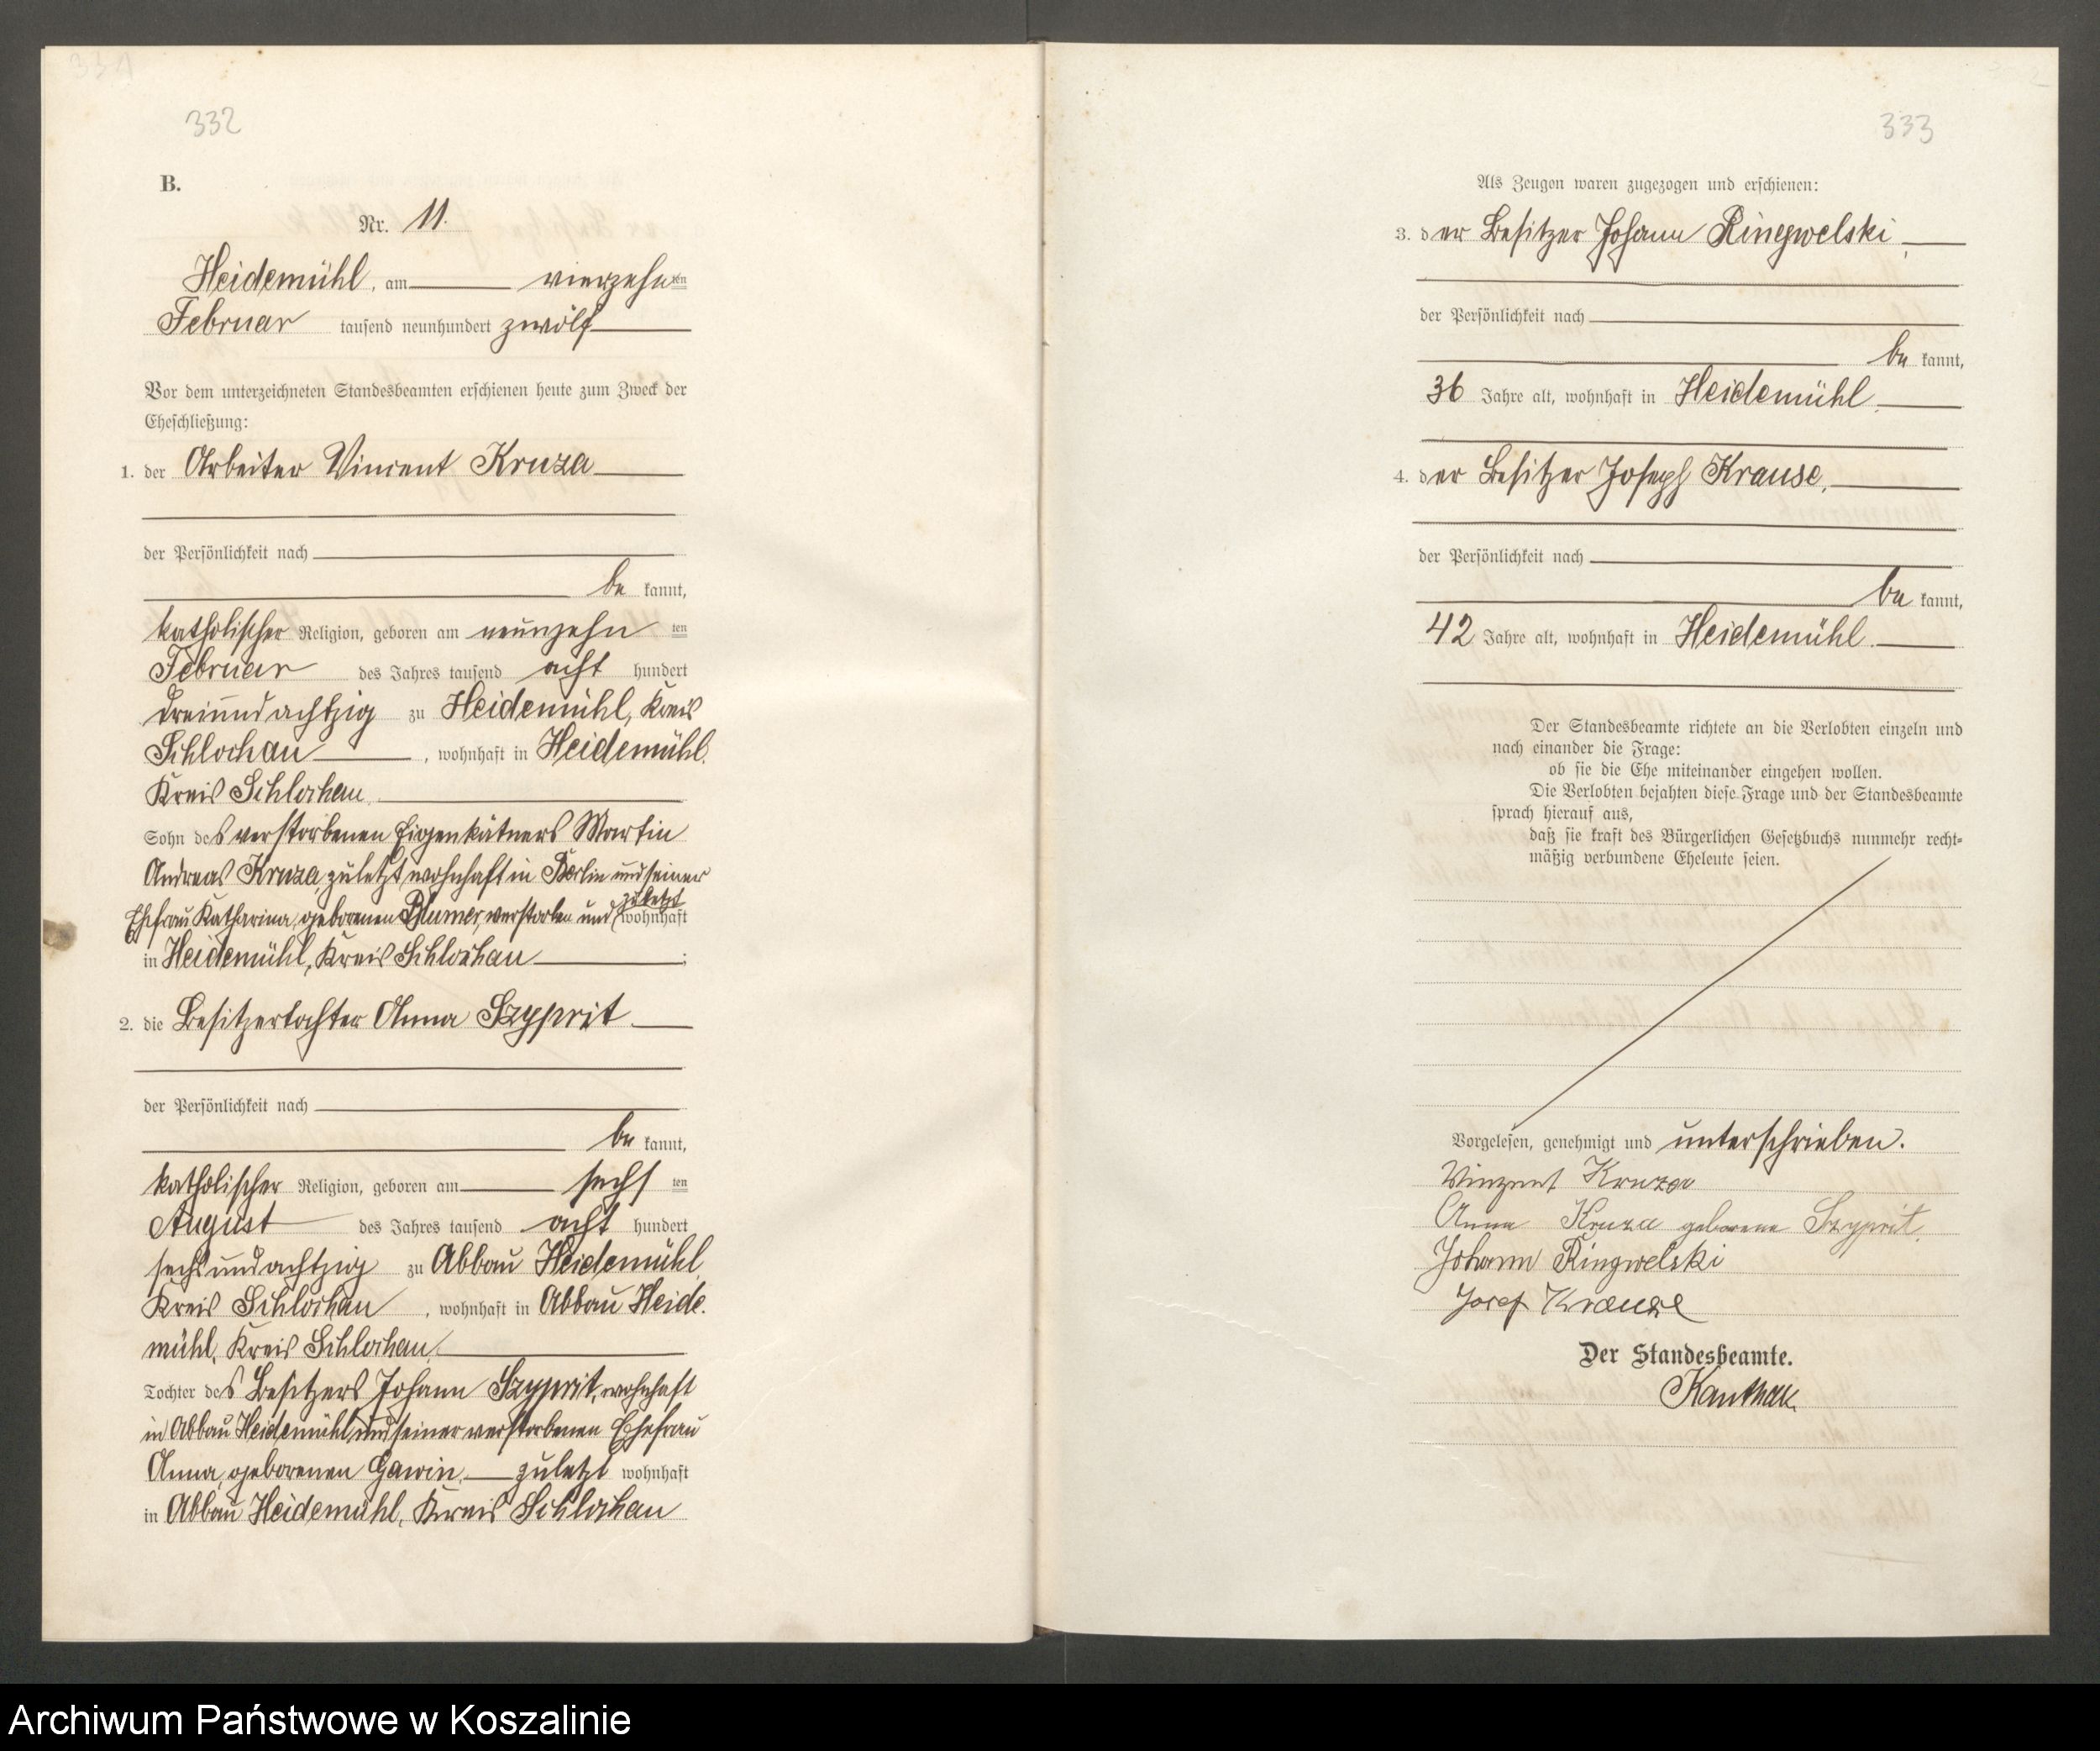 331
332
B.
Nr. 11.
Heidemühl, am vierzehn ten
Februar tausend neunhundert zwölf
Vor dem unterzeichneten Standesbeamten erschienen heute zum Zweck der
Eheschließung:
1. der Arbeiter Vincent Kruza
der Persönlichkeit nach
be kannt,
katholischer Religion, geboren am neunzehn ten
Februar des Jahres tausend acht hundert
dreiundachtzig zu Heidemühl, Kreis
Schlochau, wohnhaft in Heidemühl,
Kreis Schlochau,
Sohn des verstorbenen Eigenkätners Martin
Andreas Kruza, zuletzt wohnhaft in Berlin und seiner
zuletzt
Ehefrau Katharina, geborenen Blumer, verstorben und wohnhaft
in Heidemühl, Kreis Schlochau;
2. die Besitzertochter Anna Szyprit
der Persönlichkeit nach
be kannt,
katholischer Religion, geboren am sechs ten
August des Jahres tausend acht hundert
sechsundachtzig zu Abbau Heidemühl
Kreis Schlochau, wohnhaft in Abbau Heide-
mühl, Kreis Schlochau,
Tochter des Besitzers Johann Szyprit, wohnhaft
in Abbau Heidemühl und seiner verstorbenen Ehefrau
Anna, geborenen Gawin, zuletzt wohnhaft
in Abbau Heidemühl, Kreis Schlochau
333
Als Zeugen waren zugezogen und erschienen:
3. der Besitzer Johann Ringwelski,
der Persönlichkeit nach
be kannt,
36 Jahre alt, wohnhaft in Heidemühl,
4. der Besitzer Joseph Krause,
der Persönlichkeit nach
be kannt,
42 Jahre alt, wohnhaft in Heidemühl.
Der Standesbeamte richtete an die Verlobten einzeln und
nach einander die Frage:
ob sie die Ehe miteinander eingehen wollen.
Die Verlobten bejahten diese Frage und der Standesbeamte
sprach hierauf aus,
daß sie kraft des Bürgerlichen Gesetzbuchs nunmehr recht-
mäßig verbundene Eheleute seien.
Vorgelesen, genehmigt und unterschrieben.
Vinzent Kruza
Anna Kruza geborene Szyprit,
Johann Ringwelski
Josef Krause
Der Standesbeamte.
Kanthak
Archiwum Państwowe w Koszalinie